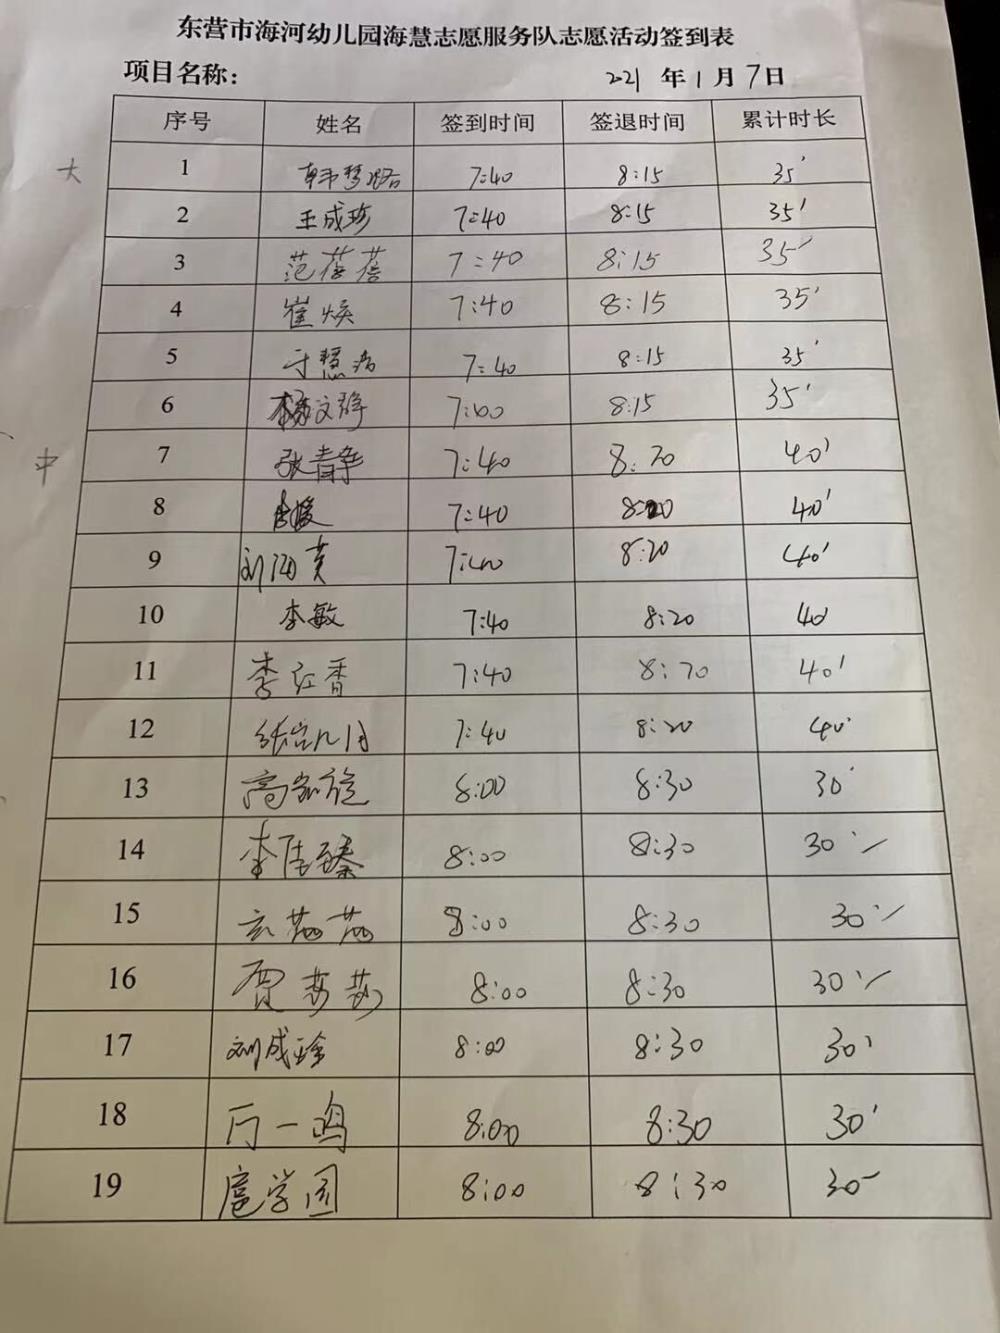 东营市海河幼儿园海慧志愿服务队志愿活动签到表
项目名称： 2021 年 1 月 7 日
序号 姓名 签到时间 签退时间 累计时长
大 1 韩梦璐 7:40 8:15 35'
2 王成珍 7:40 8:15 35'
3 范蓓蓓 7:40 8:15 35'
4 崔焕 7:40 8:15 35'
5 于慧 7:40 8:15 35'
6 杨文静 7:00 8:15 35'
中 7 张青华 7:40 8:20 40'
8 7:40 8:20 40'
9 刘海英 7:40 8:20 40'
10 李敏 7:40 8:20 40
11 李红香 7:40 8:20 40'
12 7:40 8:20 40'
13 高 旋 8:00 8:30 30'
14 李佳臻 8:00 8:30 30'
15 8:00 8:30 30'
16 贾莎莎 8:00 8:30 30'
17 刘成玲 8:00 8:30 30'
18 一鸣 8:00 8:30 30'
19 扈学园 8:00 8:30 30'